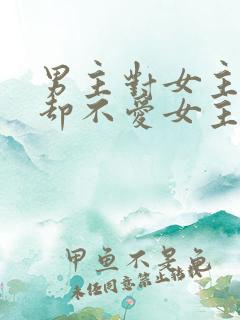 男主對女主
卻不愛女主
甲魚不是龜
未經同意禁止轉載